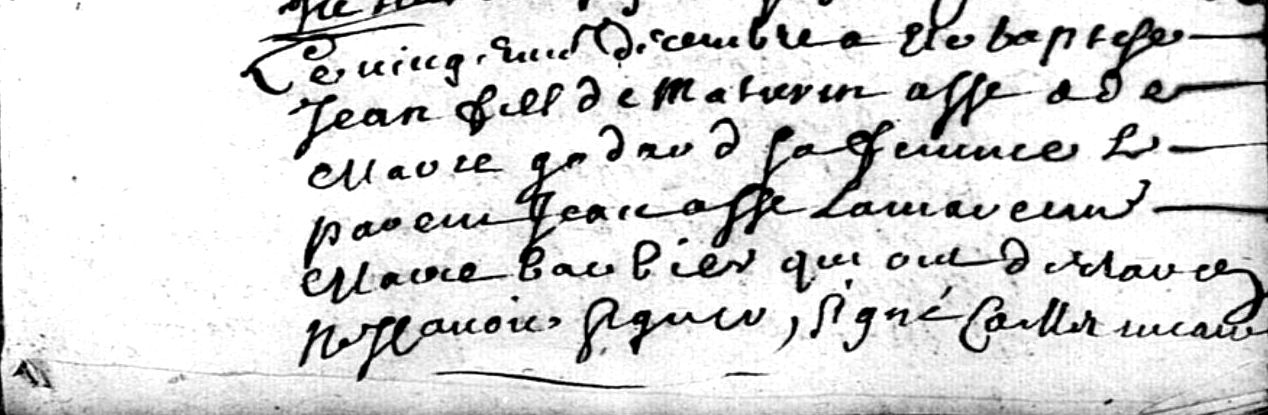 Le vingt decembre a este baptise
Jean fils de Maturin asse a de
Marie godrod sa femme le
parein Jean asse La mareinne
Marie barbier qui ont declare
ne scavoir signer, signé